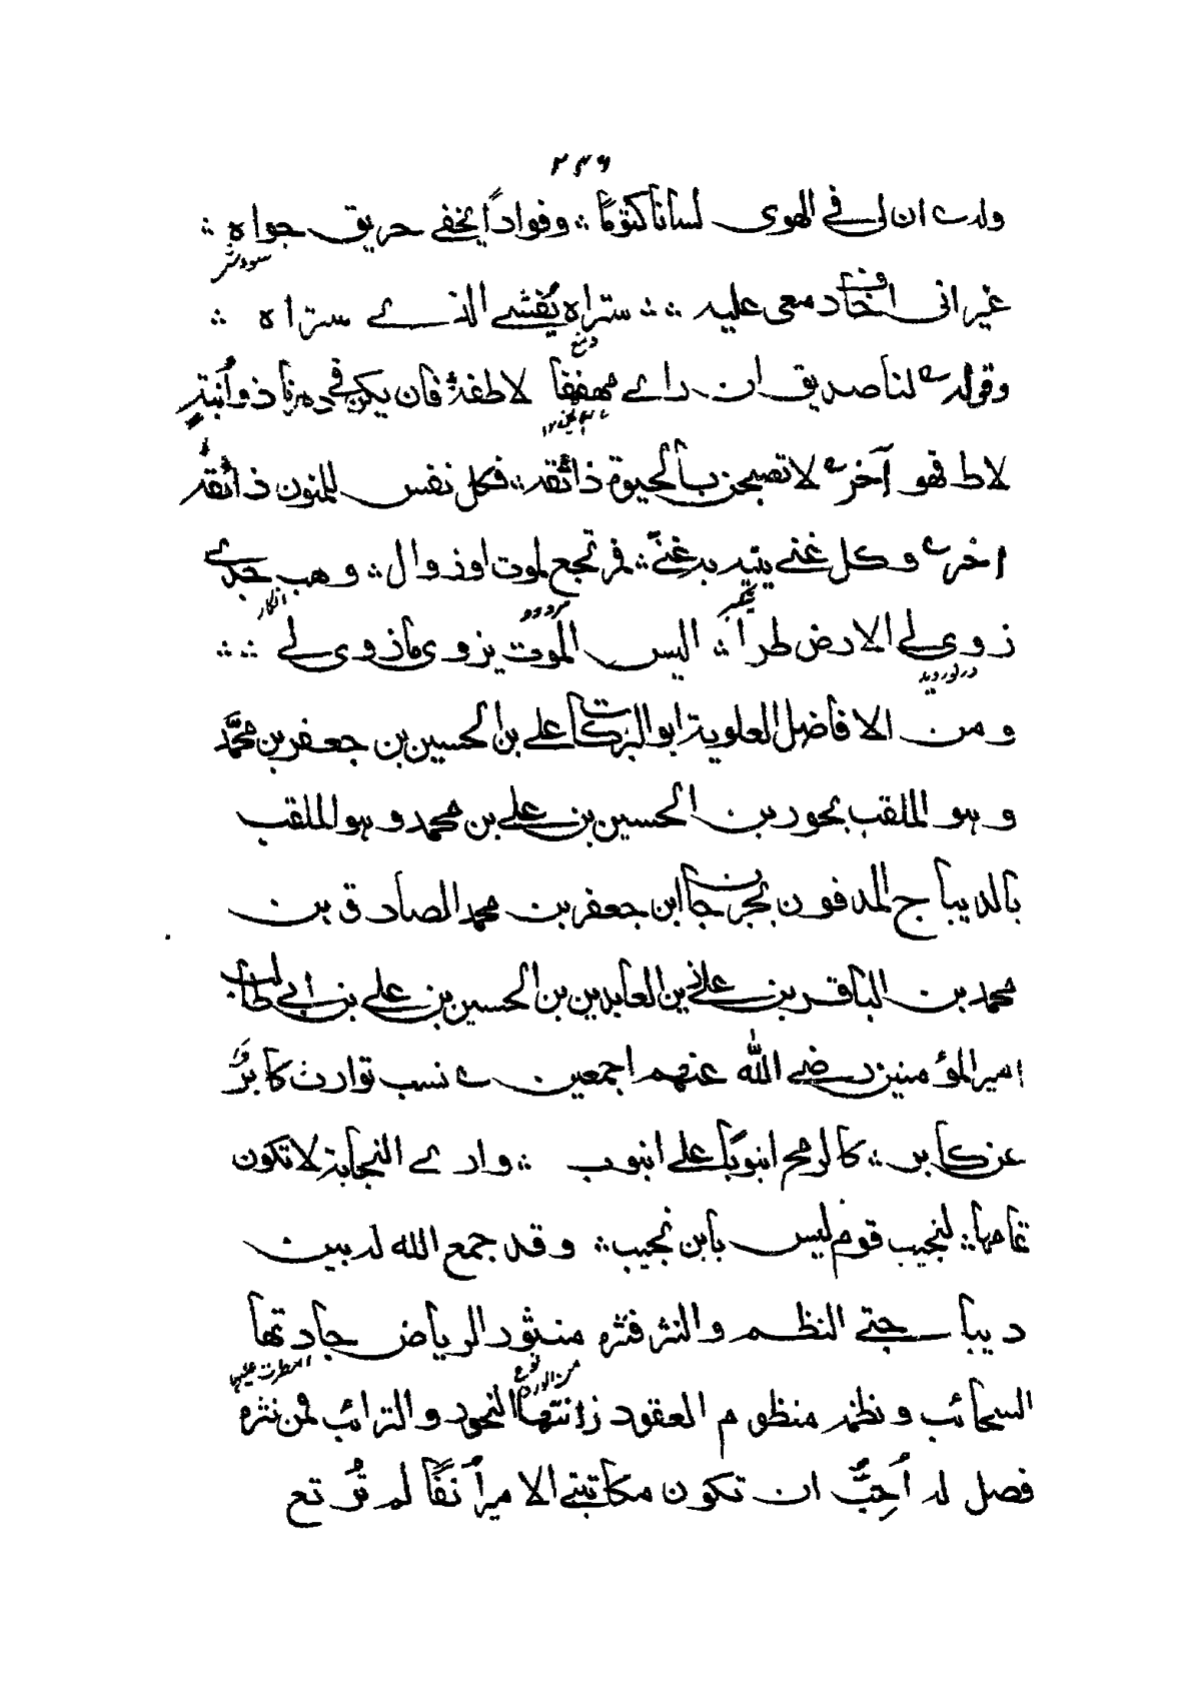 ٢٤٦
وله ان لى في الهوى لسانا كتوما ؞ وفوادًا يخفي حريق جواه ؞
غير انى اخاف دمعى عليه ؞ ؞ ستراه يُفشي الذي ستراه ؞
وقوله لنا صديق ان راى مهفهفا لاطفهٗ فان يكن في دهرنا ذو اُبنة
لاط فهو آخر لا تصبحن بالحيوة ذائقه ؞ فكل نفس للمنون ذائقه
اخر وكل غني يتيه به غنيّ ؞ فمرتجع لموت او زوال ؞ وهب جدي
زوى لي الارض طراً ؞ اليس الموت يزوى ما زوى لي ؞ ؞
ومن الافاضل العلوية ابو البركات علي بن الحسين بن جعفر بن محمّد
وهو الملقب بحور بن الحسين بن علي بن محمد وهو الملقب
بالديباج المدفون بجرجان ابن جعفر بن محمد الصادق بن
محمد بن الباقر بن علي زين العابدين بن الحسين بن علي بن ابي طالب
امير المؤمنين رضي الله عنهم اجمعين نسب توارث كابرٌ
عن كابر ؞ كالرمح انبوبًا على انبوب ؞ وارى النجابة لا تكون
تمامها ؞ لنجيب قوم ليس بابن نجيب ؞ وقد جمع الله له بين
ديباجتي النظم والنثر فنثره منثور الرياض جادتها
السحائب ونظمه منظوم العقود زانتها النحور والترائب فمن نثره
فصل له اُحِبُّ ان تكون مكاتبتي الامير اُنُفًا لم تُرتع